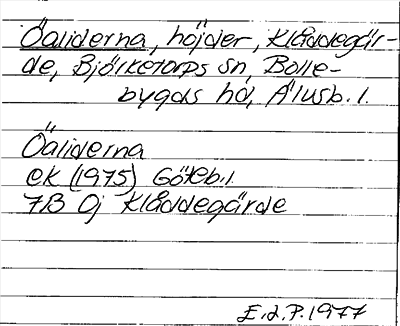 Öaliderna, höjder, Klåddegär-
de, Björketorps sn, Bolle-
bygds hd, Älvsb. l.
Öaliderna
ek (1975) Göteb. l.
7B 0j Klåddegärde
E.J.P. 1977